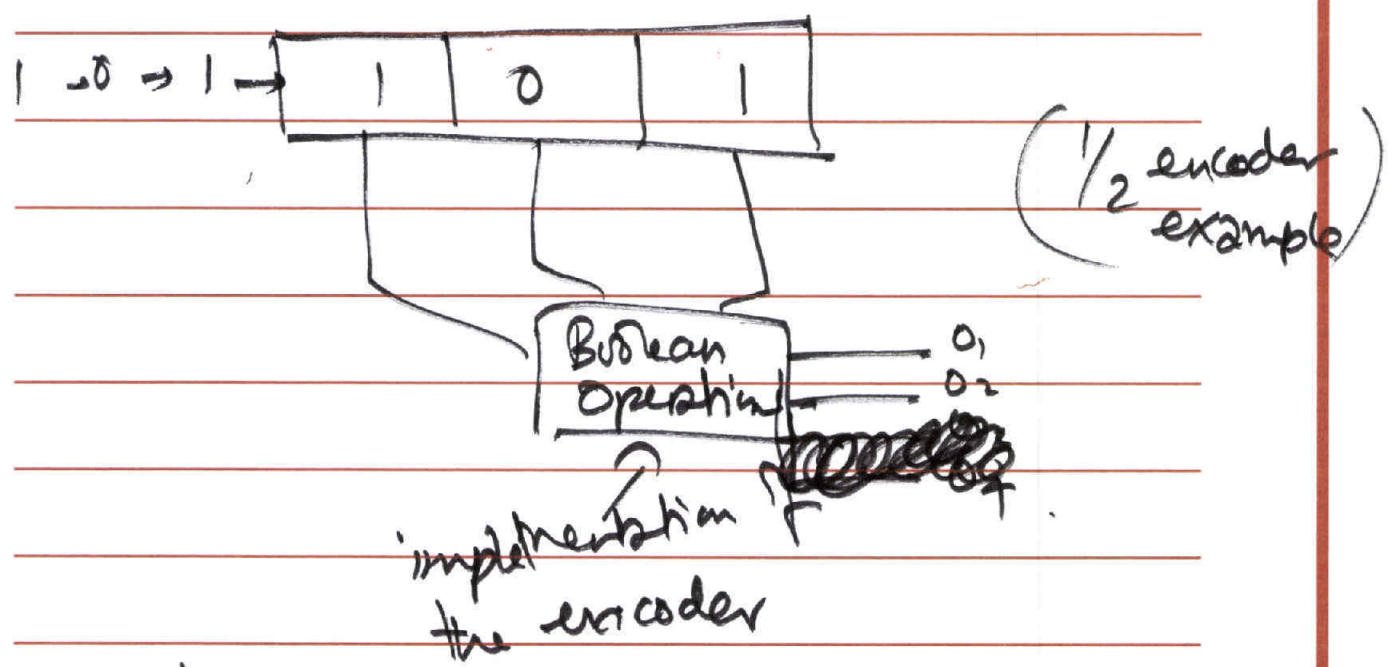 1 → 0 → 1 → 1 0 1
(1/2 encoder
example)
Boolean
Operation
O1
O2
implementation of
the encoder